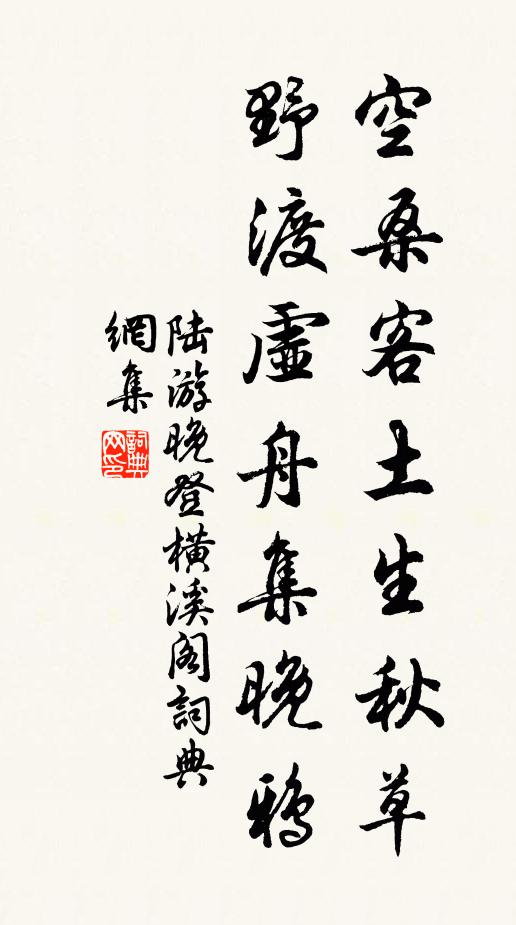 空桑客土生秋草
野渡虛舟集晚鴉
陆游晚登橫溪阁詞典
網集
詞典网印